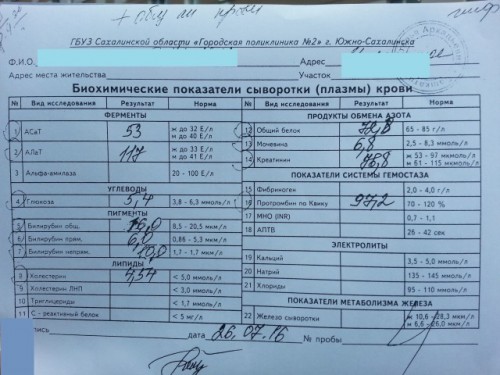 + общ ан крови
ГБУЗ Сахалинской области «Городская поликлиника №2» г. Южно-Сахалинска
Ф.И.О. Адрес
Адрес места жительства Участок
Биохимические показатели сыворотки (плазмы) крови
№ Вид исследования Результат Норма
ФЕРМЕНТЫ
1 АСаТ 53 ж до 32 Е/л
м до 40 Е/л
2 АЛаТ 117 ж до 33 Е/л
м до 41 Е/л
3 Альфа-амилаза 20 - 100 Е/л
УГЛЕВОДЫ
4 Глюкоза 5,4 3,8 - 6,3 ммоль/л
ПИГМЕНТЫ
5 Билирубин общ. 16,0 8,5 - 20,5 мкм/л
6 Билирубин прям. 6,0 0,86 - 5,3 мкм/л
7 Билирубин непрям. 10,0 1,7 - 1,7 мкм/л
ЛИПИДЫ
8 Холестерин 4,54 < 5,0 ммоль/л
9 Холестерин ЛНП < 3,0 ммоль/л
10 Триглицериды < 1,7 ммоль/л
11 С - реактивный белок < 5 мг/л
№ Вид исследования Результат Норма
ПРОДУКТЫ ОБМЕНА АЗОТА
12 Общий белок 72,8 65 - 85 г/л
13 Мочевина 6,8 2,5 - 8,3 ммоль/л
14 Креатинин 78,8 ж 53 - 97 мкмоль/л
м 61 - 115 мкмоль/л
ПОКАЗАТЕЛИ СИСТЕМЫ ГЕМОСТАЗА
15 Фибриноген 2,0 - 4,0 г/л
16 Протромбин по Квику 97,2 70 - 120 %
17 МНО (INR) 0,7 - 1,1
18 АПТВ 26 - 42 сек
ЭЛЕКТРОЛИТЫ
19 Кальций 3,5 - 5,0 ммоль/л
20 Натрий 135 - 145 ммоль/л
21 Хлориды 95 - 110 ммоль/л
ПОКАЗАТЕЛИ МЕТАБОЛИЗМА ЖЕЛЕЗА
22 Железо сыворотки ж 10,6 - 28,3 мкм/л
м 6,6 - 26,0 мкм/л
дата 26.07.16 № пробы